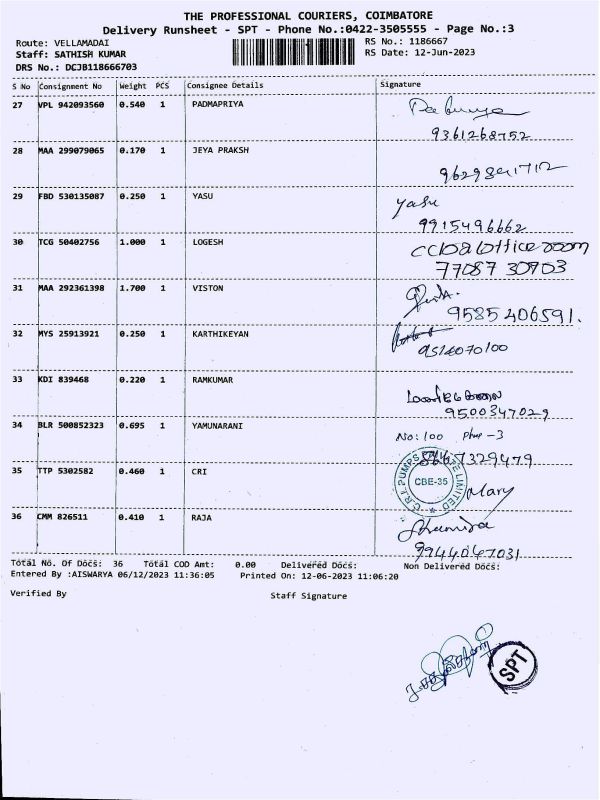 THE PROFESSIONAL COURIERS, COIMBATORE
Delivery Runsheet - SPT - Phone No.:0422-3505555 - Page No.:3
Route: VELLAMADAI
RS No.: 1186667
Staff: SATHISH KUMAR
RS Date: 12-Jun-2023
DRS No.: DCJB118666703
S No Consignment No Weight PCS Consignee Details Signature
27 VPL 942093560 0.540 1 PADMAPRIYA
9361268752
28 MAA 299079065 0.170 1 JEYA PRAKSH
29 FBD 530135087 0.250 1 YASU yasu
9915496662
30 TCG 50402756 1.000 1 LOGESH office room
77087 30903
31 MAA 292361398 1.700 1 VISTON
9585406591.
32 MYS 25913921 0.250 1 KARTHIKEYAN
9514070100
33 KDI 839468 0.220 1 RAMKUMAR
9500347029
34 BLR 500852323 0.695 1 YAMUNARANI No: 100
7329479
35 TTP 5302582 0.460 1 CRI
C.R.I. PUMPS PRIVATE LIMITED
CBE-35
Mary
36 CMM 826511 0.410 1 RAJA
9944047031
Total No. Of Docs: 36 Total COD Amt: 0.00 Delivered Docs: Non Delivered Docs:
Entered By :AISWARYA 06/12/2023 11:36:05 Printed On: 12-06-2023 11:06:20
Verified By Staff Signature
SPT